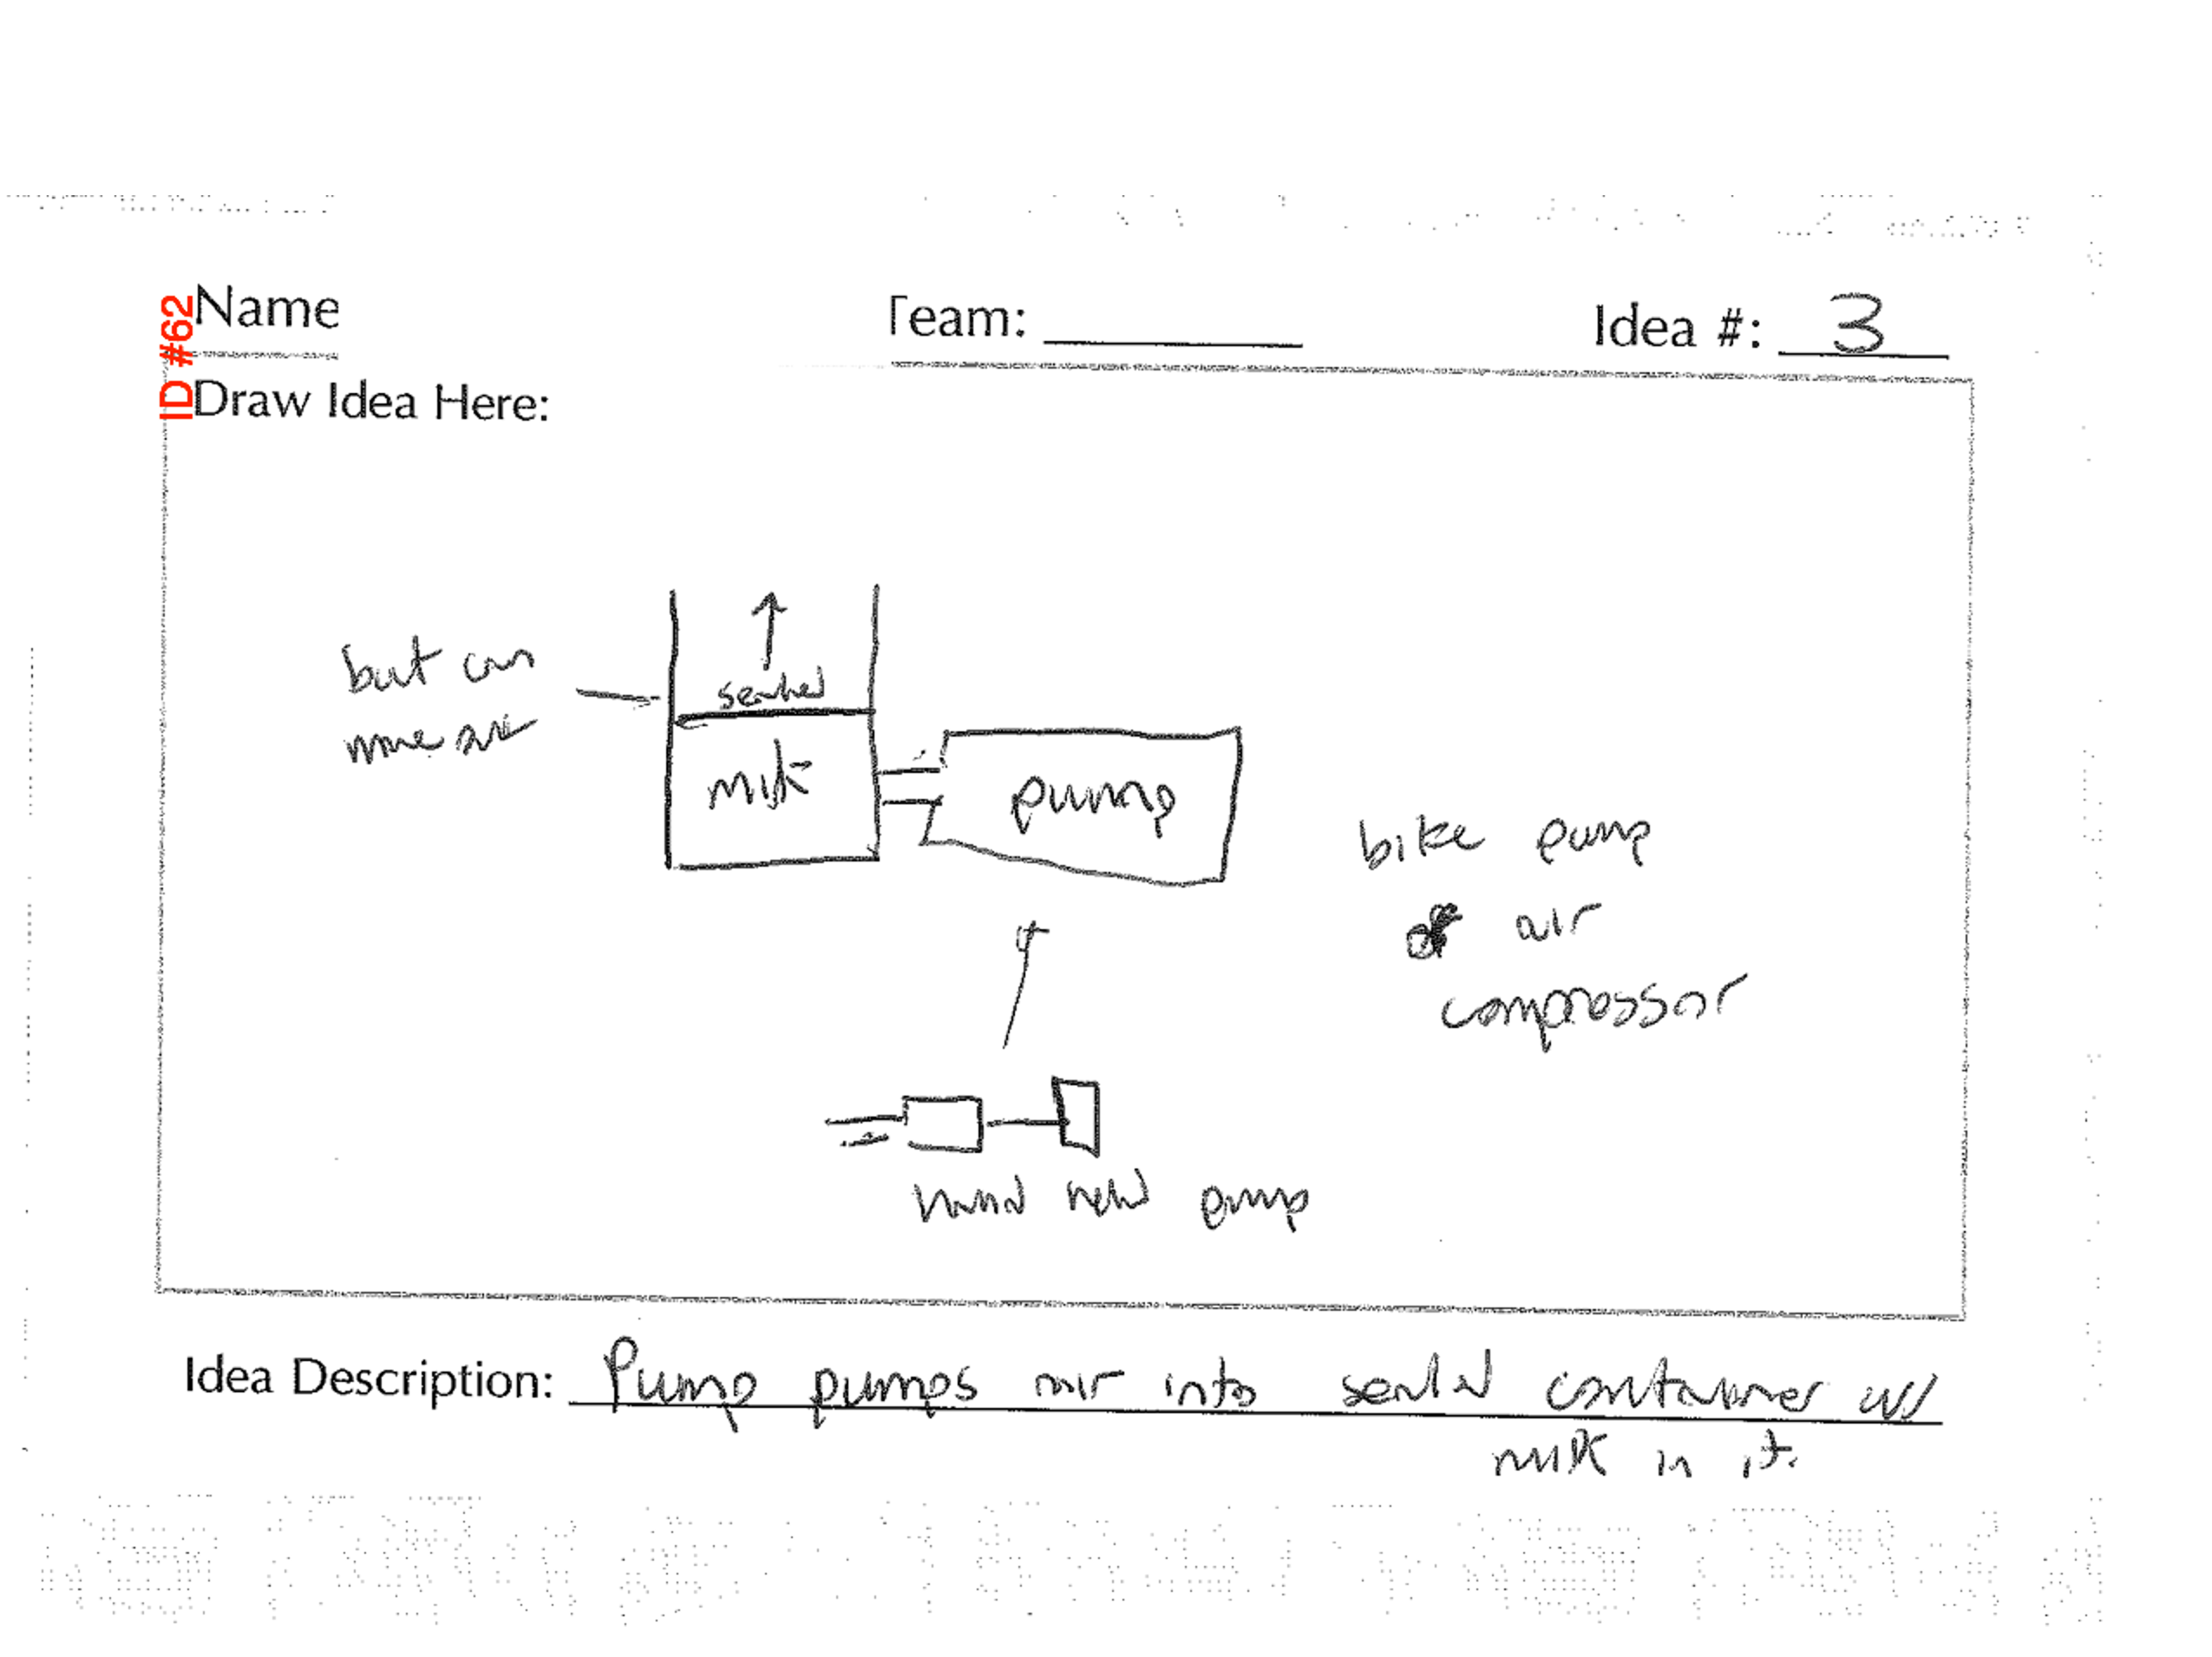 ID #62
Name
Team:
Idea #: 3
Draw Idea Here:
but can
sealed
milk
pump
bike pump
or air
compressor
hand held pump
Idea Description: Pump pumps air into sealed container w/
milk in it.